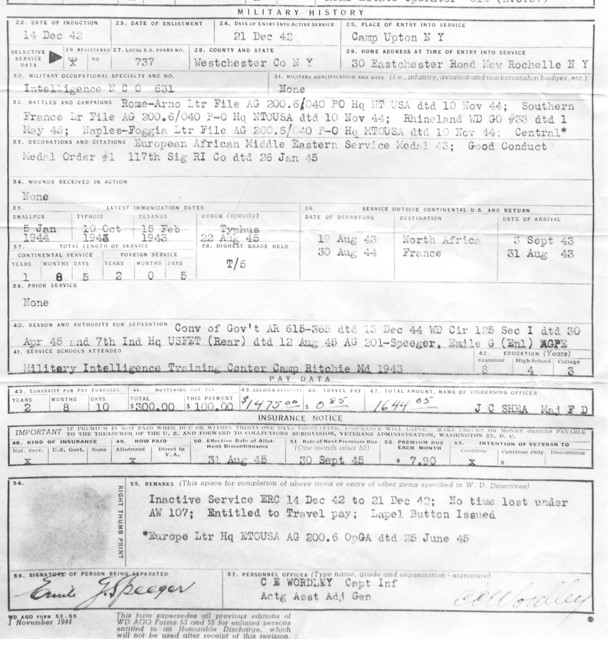 MILITARY HISTORY
22. DATE OF INDUCTION 23. DATE OF ENLISTMENT 24. DATE OF ENTRY INTO ACTIVE SERVICE 25. PLACE OF ENTRY INTO SERVICE
14 Dec 42 21 Dec 42 Camp Upton N Y
SELECTIVE SERVICE DATA 26. REGISTERED 27. LOCAL S.S. BOARD NO. 28. COUNTY AND STATE 29. HOME ADDRESS AT TIME OF ENTRY INTO SERVICE
X 737 Westchester Co N Y 30 Eastchester Road New Rochelle N Y
30. MILITARY OCCUPATIONAL SPECIALTY AND NO. 31. MILITARY QUALIFICATION AND DATE (i.e., infantry, aviation and marksmanship badges, etc.)
Intelligence N C O 631 None
32. BATTLES AND CAMPAIGNS Rome-Arno Ltr File AG 200.6/040 PO Hq NT USA dtd 10 Nov 44; Southern
France Lr File AG 200.6/040 P-O Hq NTOUSA dtd 10 Nov 44; Rhineland WD GO #33 dtd 1
May 45; Naples-Foggia Ltr File AG 200.6/040 P-O Hq MTOUSA dtd 10 Nov 44; Central*
33. DECORATIONS AND CITATIONS European African Middle Eastern Service Medal 43; Good Conduct
Medal Order #1 117th Sig RI Co dtd 26 Jan 45
34. WOUNDS RECEIVED IN ACTION
None
35. LATEST IMMUNIZATION DATES 36. SERVICE OUTSIDE CONTINENTAL U.S. AND RETURN
SMALLPOX TYPHOID TETANUS OTHER (specify) DATE OF DEPARTURE DESTINATION DATE OF ARRIVAL
5 Jan 1944 19 Oct 1943 15 Feb 1943 Typhus 22 Aug 45
19 Aug 43 North Africa 3 Sept 43
30 Aug 44 France 31 Aug 43
37. TOTAL LENGTH OF SERVICE 38. HIGHEST GRADE HELD
CONTINENTAL SERVICE FOREIGN SERVICE
YEARS MONTHS DAYS YEARS MONTHS DAYS T/5
1 8 5 2 0 5
39. PRIOR SERVICE
None
40. REASON AND AUTHORITY FOR SEPARATION Conv of Gov't AR 615-365 dtd 15 Dec 44 WD Cir 125 Sec I dtd 30
Apr 45 and 7th Ind Hq USFET (Rear) dtd 12 Aug 45 AG 201-Speeger, Emile G (Enl) AGPE
41. SERVICE SCHOOLS ATTENDED 42. EDUCATION (Years)
Grammar High School College
Military Intelligence Training Center Camp Ritchie Md 1943 8 4 3
PAY DATA
43. LONGEVITY FOR PAY PURPOSES 44. MUSTERING OUT PAY 45. SOLDIER DEPOSITS 46. TRAVEL PAY 47. TOTAL AMOUNT, NAME OF DISBURSING OFFICER
YEARS MONTHS DAYS TOTAL THIS PAYMENT
2 8 10 $300.00 $100.00 $1475.00 $ 0.85 1644.05 J C SHEA Maj F D
INSURANCE NOTICE
IMPORTANT IF PREMIUM IS NOT PAID WHEN DUE OR WITHIN THIRTY-ONE DAYS THEREAFTER, INSURANCE WILL LAPSE. MAKE CHECKS OR MONEY ORDERS PAYABLE
TO THE TREASURER OF THE U. S. AND FORWARD TO COLLECTIONS SUBDIVISION, VETERANS ADMINISTRATION, WASHINGTON 25, D. C.
48. KIND OF INSURANCE 49. HOW PAID 50. Effective Date of Allotment Discontinuance 51. Date of Next Premium Due (One month after 50) 52. PREMIUM DUE EACH MONTH 53. INTENTION OF VETERAN TO
Nat. Serv. U.S. Govt. None Allotment Direct to V.A. Continue Continue Only Discontinue
x X 31 Aug 45 30 Sept 45 $ 7.90 x
54. RIGHT THUMB PRINT
55. REMARKS (This space for completion of above items or entry of other items specified in W. D. Directives)
Inactive Service ERC 14 Dec 42 to 21 Dec 42; No time lost under
AW 107; Entitled to Travel pay; Lapel Button Issued
*Europe Ltr Hq ETOUSA AG 200.6 OpGA dtd 25 June 45
56. SIGNATURE OF PERSON BEING SEPARATED 57. PERSONNEL OFFICER (Type name, grade and organization - signature)
Emile G. Speeger
C E WORDLEY Capt Inf
Actg Asst Adj Gen
C E Wordley
WD AGO FORM 53-55
1 November 1944
This form supersedes all previous editions of
WD AGO Forms 53 and 55 for enlisted persons
entitled to an Honorable Discharge, which
will not be used after receipt of this revision.